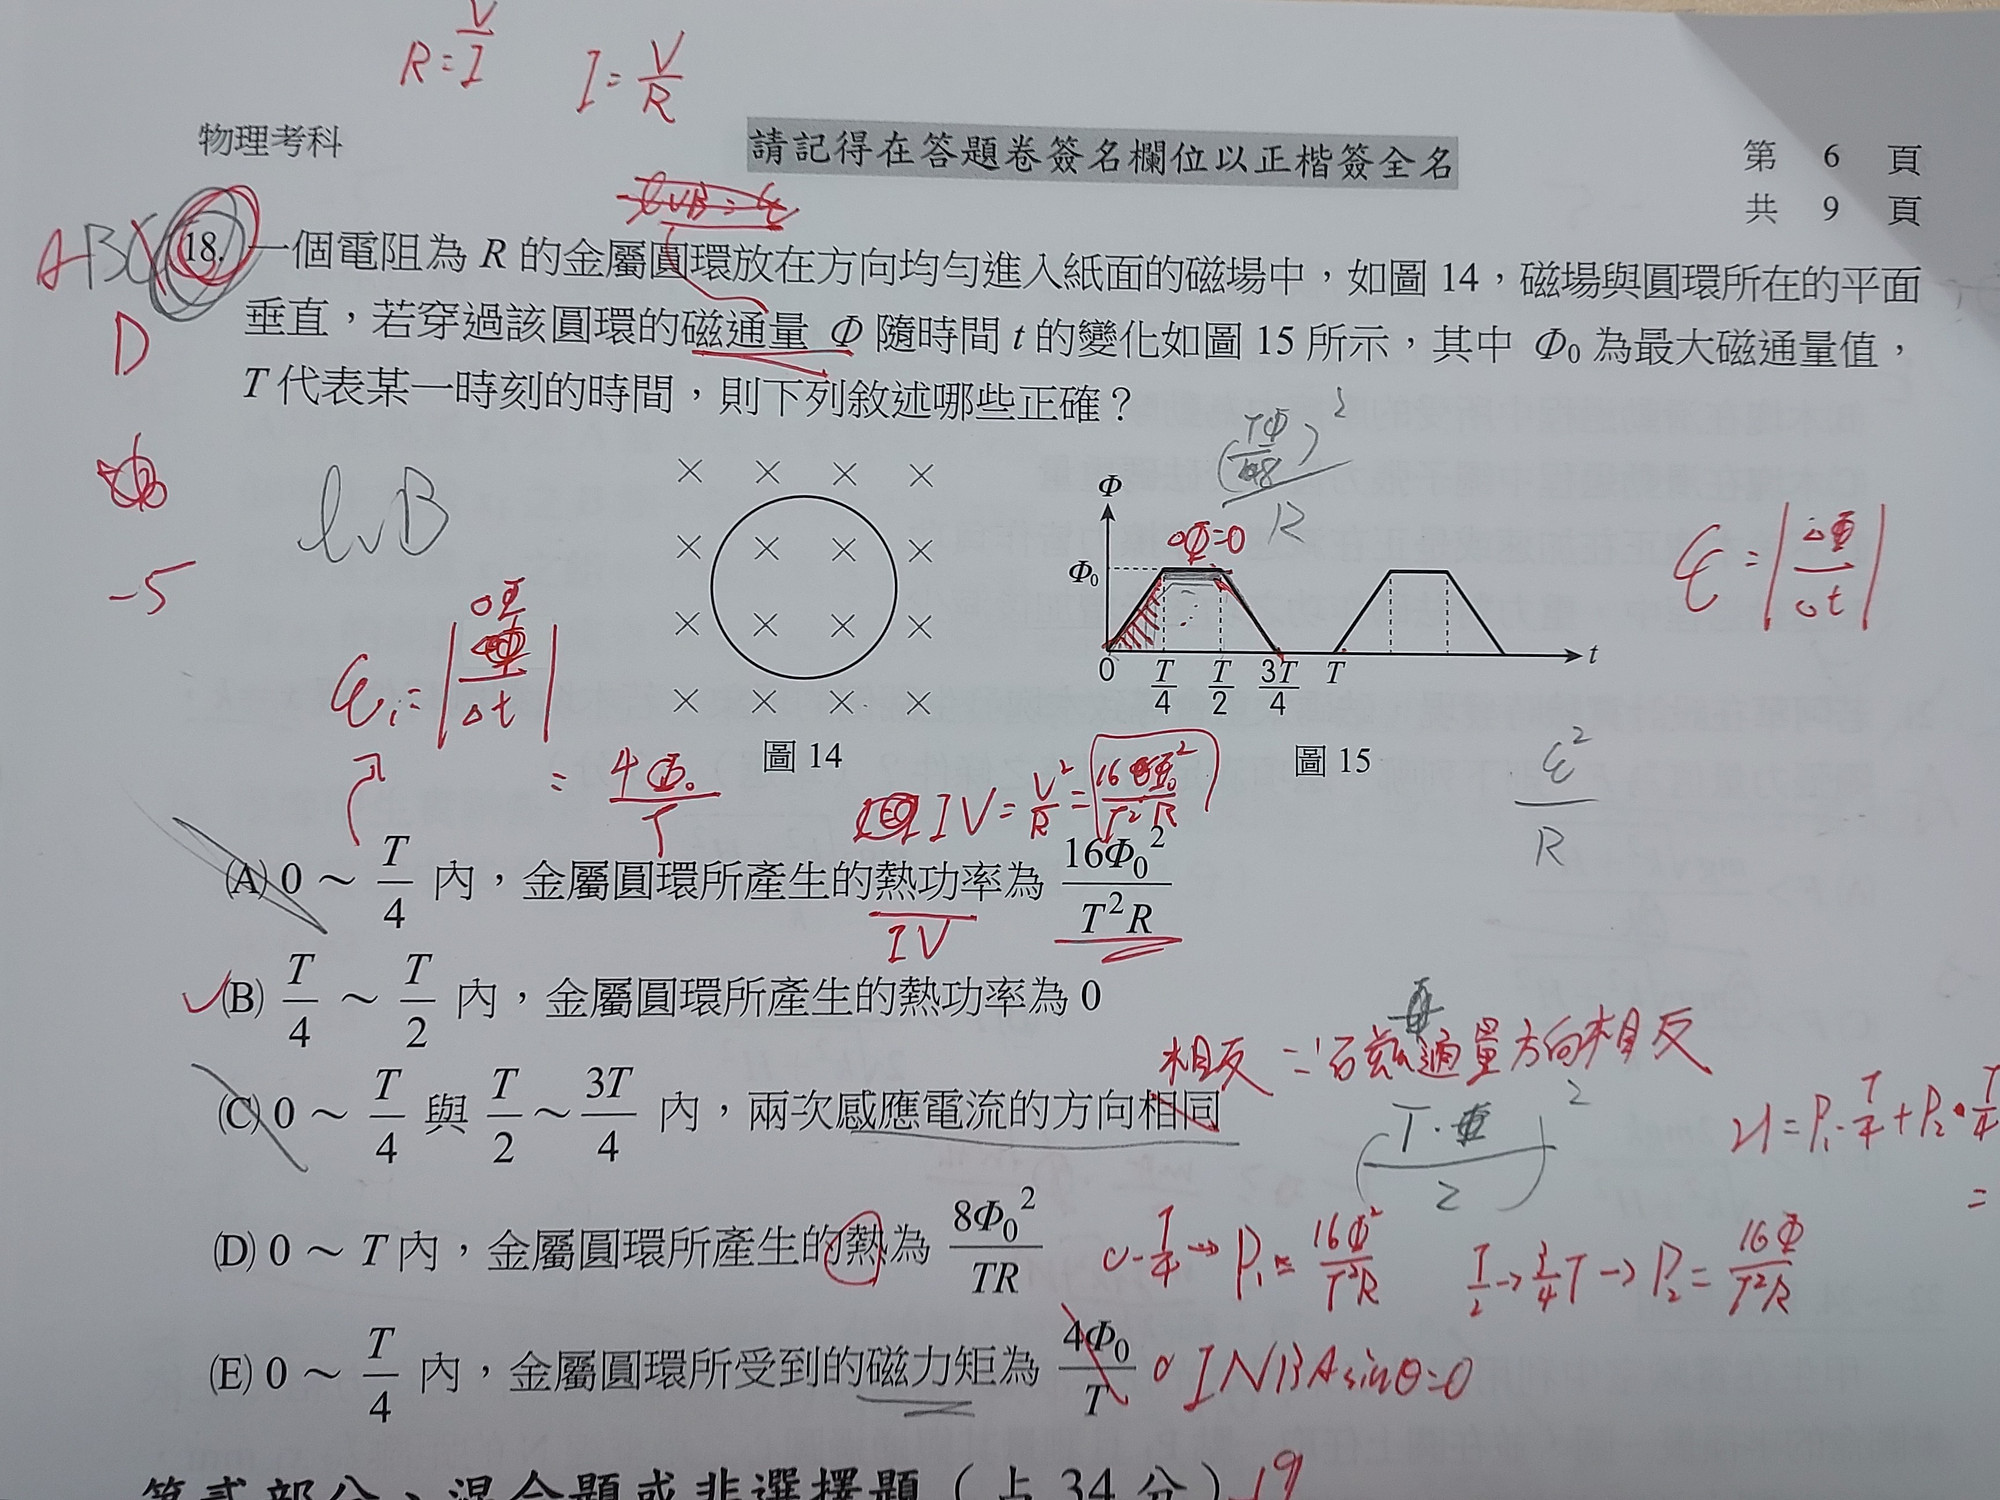 R = V/I
I = V/R
物理考科
請記得在答題卷簽名欄位以正楷簽全名
第 6 頁
共 9 頁
18. 一個電阻為 R 的金屬圓環放在方向均勻進入紙面的磁場中，如圖 14，磁場與圓環所在的平面
垂直，若穿過該圓環的磁通量 Φ 隨時間 t 的變化如圖 15 所示，其中 Φ₀ 為最大磁通量值，
T 代表某一時刻的時間，則下列敘述哪些正確？
D
-5
lvB
εi = |ΔΦ/Δt|
= 4Φ₀/T
× × × ×
× × × ×
× × × ×
× × × ×
圖 14
Φ
Φ₀
ΔΦ=0
0 T/4 T/2 3T/4 T t
圖 15
ε = |ΔΦ/Δt|
ε²/R
IV = V²/R = 16Φ₀²/T²R
(A) 0 ~ T/4 內，金屬圓環所產生的熱功率為 16Φ₀²/T²R
IV
(B) T/4 ~ T/2 內，金屬圓環所產生的熱功率為 0
相反 ∵磁通量方向相反
(C) 0 ~ T/4 與 T/2 ~ 3T/4 內，兩次感應電流的方向相同
(D) 0 ~ T 內，金屬圓環所產生的熱為 8Φ₀²/TR
0-T/4 → P₁ = 16Φ²/T²R
T/2 → 3/4T → P₂ = 16Φ/T²R
(E) 0 ~ T/4 內，金屬圓環所受到的磁力矩為 4Φ₀/T
INBAsinθ=0
第貳部分、混合題或非選擇題（占 34 分）
19